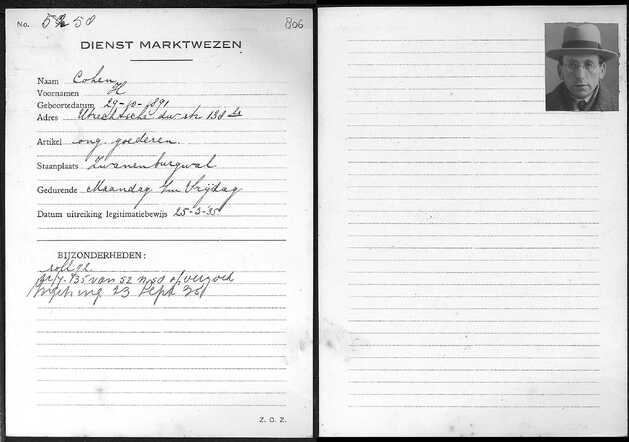 No. 52 50 806
DIENST MARKTWEZEN
Naam Cohen
Voornamen H
Geboortedatum 29-10-1891
Adres Utrechtsche dw str 138
Artikel ong. goederen.
Staanplaats Zwanenburgwal
Gedurende Maandag t/m Vrijdag
Datum uitreiking legitimatiebewijs 25-3-35
BIJZONDERHEDEN:
van 52 n 50 op verzoek
23 Sept. 35
Z. O. Z.